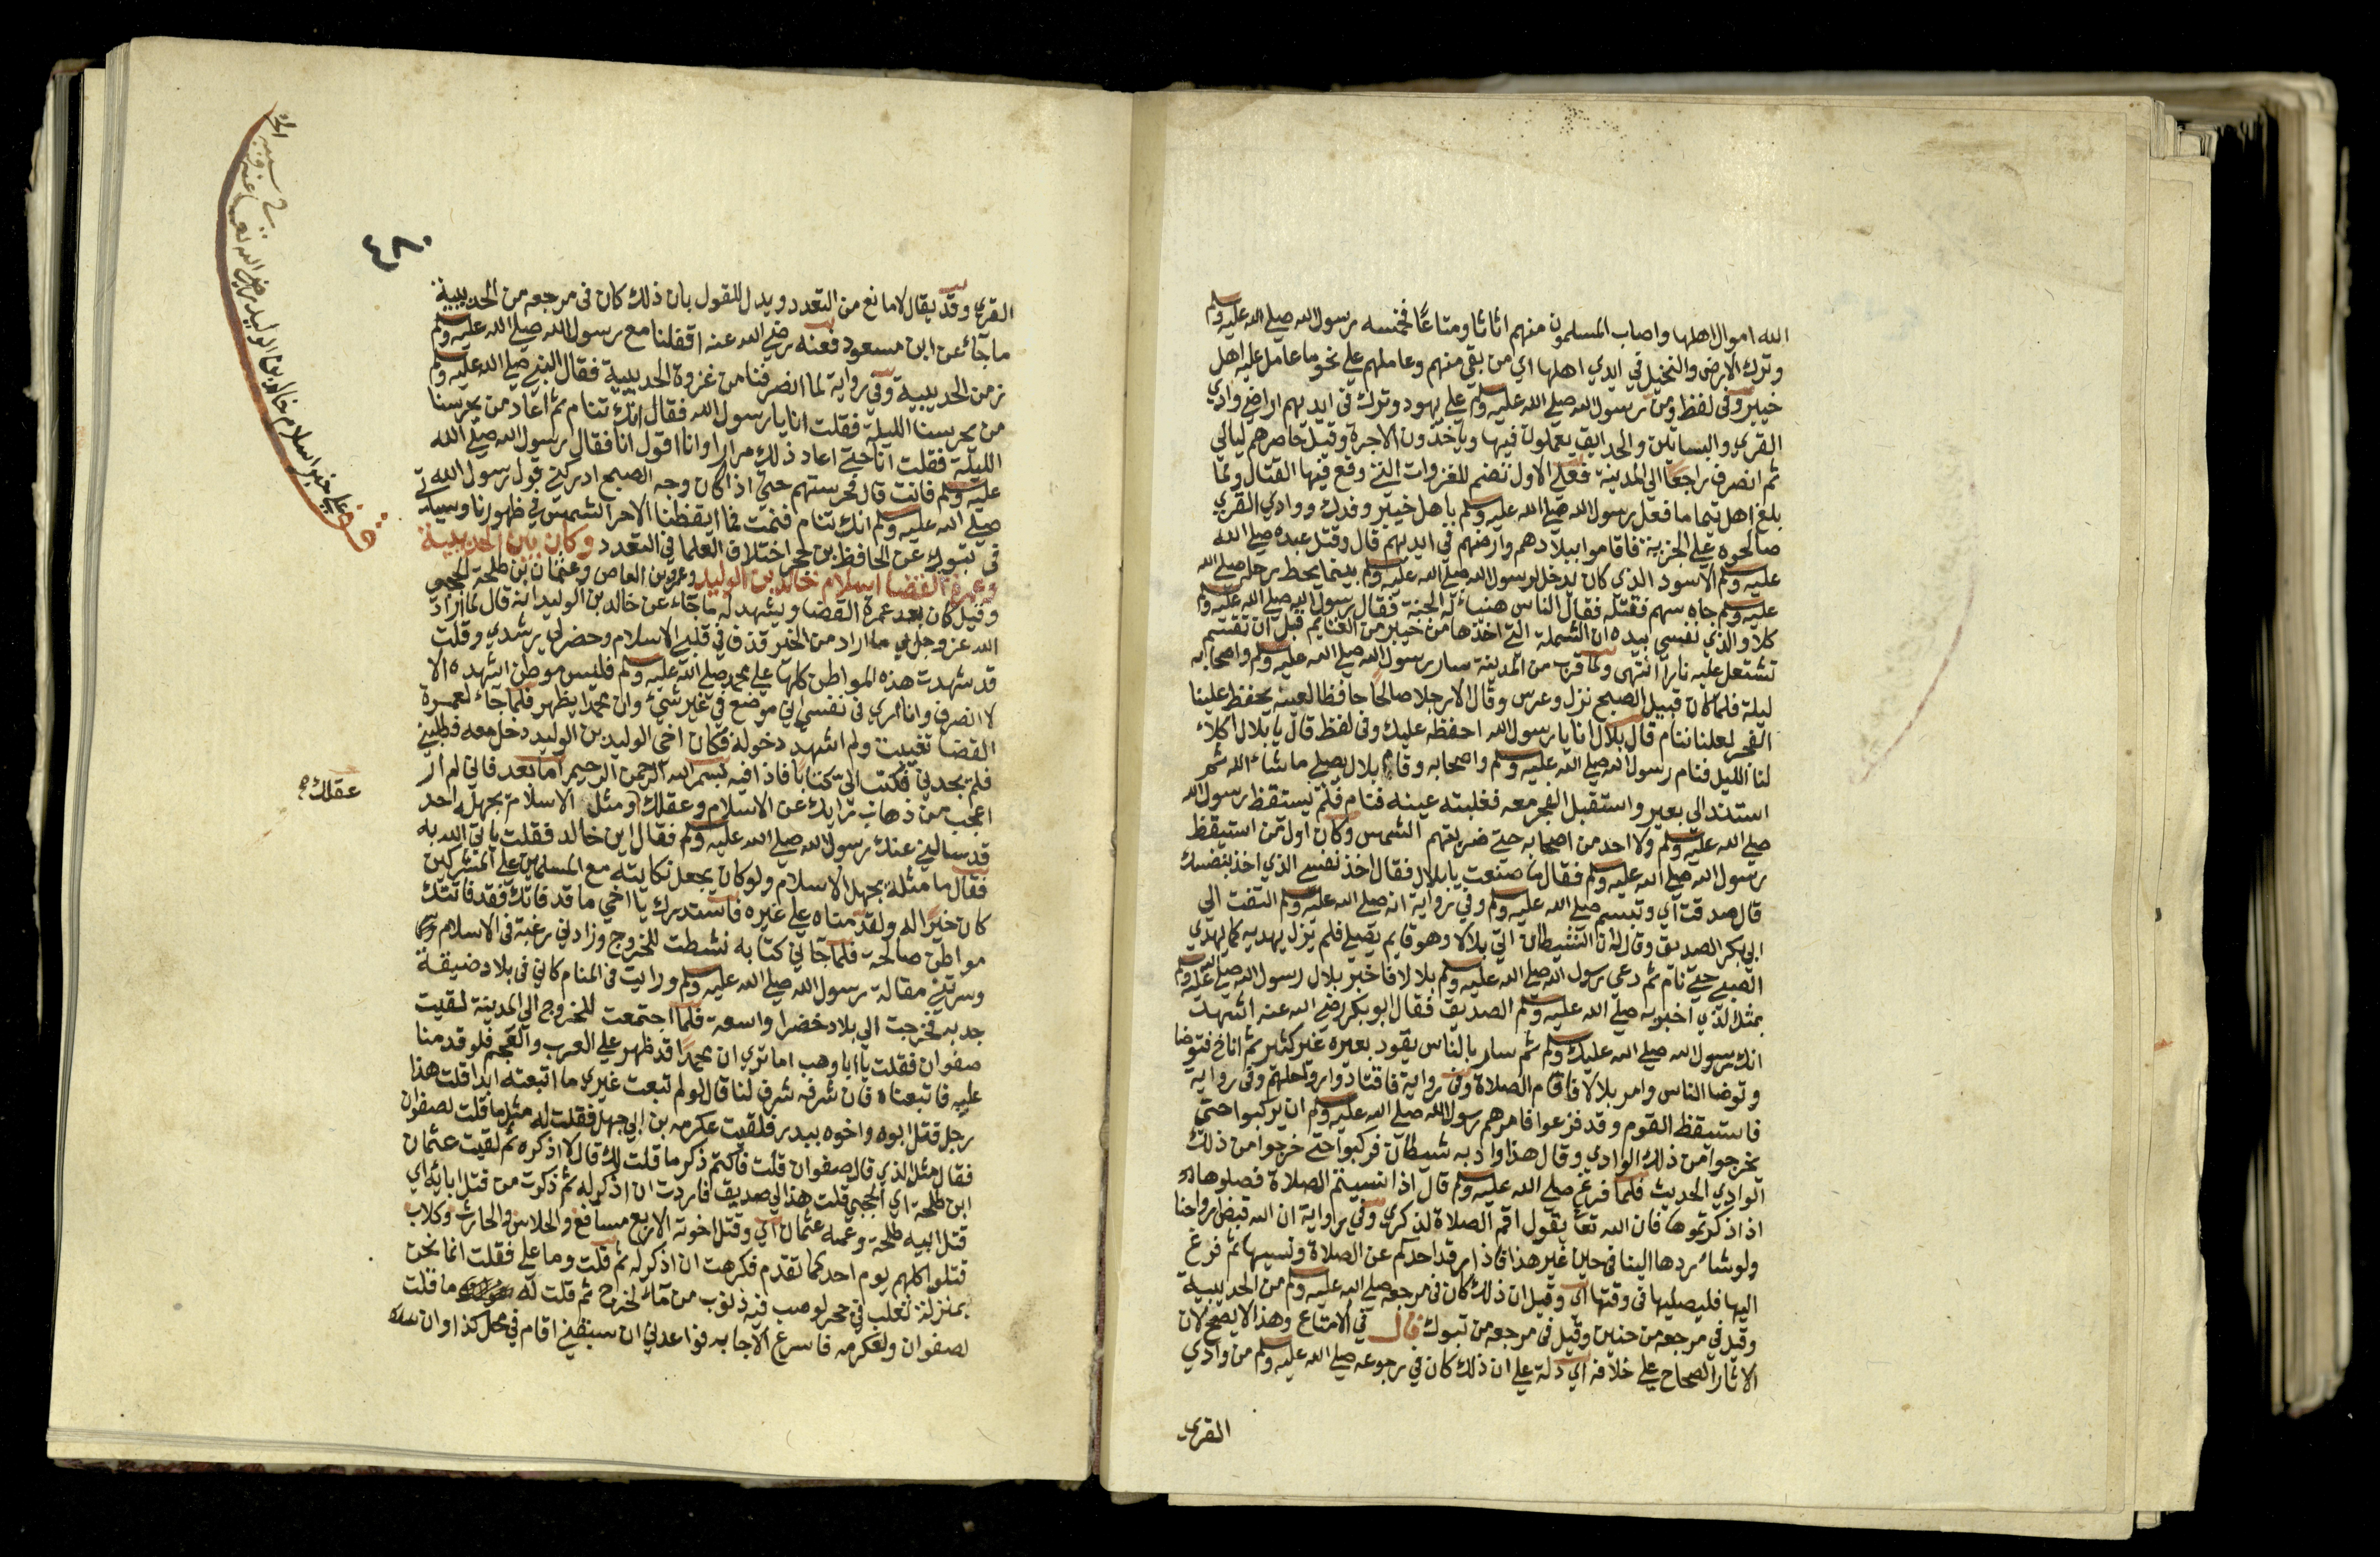 الله اموال اهلها واصاب المسلمون منهم اثاثا ومتاعا فخمسه رسول الله صلى الله عليه وسلم
وترك الارض والنخيل في ايدي اهلها اي من بقي منهم وعاملهم على نحو ما عامل عليه اهل
خيبر وفي لفظ ومن رسول الله صلى الله عليه وسلم على يهود وترك في ايديهم اراضي وادي
القرى والبساتين والحدايق يعملون فيها وياخذون الاجرة وقيل حاصرهم ليالي
ثم انصرف راجعا الى المدينة فعلى الاول تضم للغزوات التي وقع فيها القتال ولما
بلغ اهل تيما ما فعل رسول الله صلى الله عليه وسلم باهل خيبر وفدك ووادي القرى
صالحوه على الجزية فاقاموا ببلادهم وارضهم في ايديهم قال وقتل عبده صلى الله
عليه وسلم الاسود الذي كان يرحل لرسول الله صلى الله عليه وسلم بينما يحط رحله صلى الله
عليه وسلم جاه سهم فقتله فقال الناس هنيا له الجنة فقال رسول الله صلى الله عليه وسلم
كلا والذي نفسي بيده ان الشملة التي اخذها من خيبر من الغنايم قبل ان تقسم
تشتعل عليه نارا انتهى ولما قرب من المدينة سار رسول الله صلى الله عليه وسلم واصحابه
ليلة فلما كان قبيل الصبح نزل وعرس وقال الا رجلا صالحا حافظا لعينه يحفظ علينا
الفجر لعلنا ننام قال بلال انا يا رسول الله احفظه عليك وفي لفظ قال يا بلال اكلا
لنا الليل فنام رسول الله صلى الله عليه وسلم واصحابه وقام بلال يصلي ما شاء الله ثم
استند الى بعير واستقبل الفجر معه فغلبته عينه فنام فلم يستقظ رسول الله
صلى الله عليه وسلم ولا احد من اصحابه حتى ضربتهم الشمس وكان اول من استيقظ
رسول الله صلى الله عليه وسلم فقال ما صنعت يا بلال فقال اخذ نفسي الذي اخذ بنفسك
قال صدقت اي وتبسم صلى الله عليه وسلم وفي رواية انه صلى الله عليه وسلم التفت الى
ابي بكر الصديق وقال له ان الشيطان اتى بلالا وهو قايم يصلي فلم يزل يهديه كما يهدى
الصبي حتى نام ثم دعى رسول الله صلى الله عليه وسلم بلالا فاخبر بلال رسول الله صلى الله عليه وسلم
بمثل الذي اخبر به صلى الله عليه وسلم الصديق فقال ابو بكر رضي الله عنه اشهد
انك رسول الله صلى الله عليك وسلم ثم سار بالناس يقود بعيره غير كثير ثم اناخ فتوضا
وتوضا الناس وامر بلالا فاقام الصلاة وفي رواية فاقتادوا رواحلهم وفي رواية
فاستيقظ القوم وقد فزعوا فامرهم رسول الله صلى الله عليه وسلم ان يركبوا حتى
يخرجوا من ذلك الوادي وقال هذا واد به شيطان فركبوا حتى خرجوا من ذلك
الوادي الحديث فلما فرغ صلى الله عليه وسلم قال اذا نسيتم الصلاة فصلوها
اذا ذكرتموها فان الله تعا يقول اقم الصلاة لذكري وفي رواية ان الله قبض ارواحنا
ولو شاء ردها الينا في حين غير هذا فاذا رقد احدكم عن الصلاة ونسيها ثم فزع
اليها فليصليها في وقتها اي وقيل ان ذلك كان في مرجعه صلى الله عليه وسلم من الحديبية
وقيل في مرجعه من حنين وقيل في مرجعه من تبوك قال في الامتاع وهذا لا يصح لان
الاثار الصحاح على خلافه اي دلة على ان ذلك كان في رجوعه صلى الله عليه وسلم من وادي
القرى
٤٨٠
القرى وقد يقال لا مانع من التعدد ويدل للقول بان ذلك كان في مرجعه من الحديبية
ما جاء عن ابن مسعود فعنه رضي الله عنه اقفلنا مع رسول الله صلى الله عليه وسلم
زمن الحديبية وفي رواية لما انصرفنا من غزوة الحديبية فقال النبي صلى الله عليه وسلم
من يحرسنا الليلة فقلت انا يا رسول الله فقال انك تنام ثم اعاد من يحرسنا
الليلة فقلت انا حتى اعاد ذلك مرارا وانا اقول انا فقال رسول الله صلى الله
عليه وسلم فانت قال فحرستهم حتى اذا كان وجه الصبح ادركني قول رسول الله
صلى الله عليه وسلم انك تنام فنمت فما ايقظنا الا حر الشمس في ظهورنا وسياتي
في تبوك عن الحافظ بن حجر اختلاف العلما في التعدد وكان بين الحديبية
وعمرة القضا اسلام خالد بن الوليد وعمرو بن العاص وعثمان بن طلحة الحجبي
وقيل كان بعد عمرة القضا ويشهد له ما جاء عن خالد بن الوليد انه قال لما اراد
الله عز وجل بي ما اراد من الخير قذف في قلبي الاسلام وحضر لي رشدي وقلت
قد شهدت هذه المواطن كلها على محمد صلى الله عليه وسلم فليس موطن اشهده الا
لا انصرف وانا ارى في نفسي اني موضع في غير شيء وان محمدا يظهر فلما جاء لعمرة
القضا تغيبت ولم اشهد دخوله فكان اخي الوليد بن الوليد دخل معه فطلبني
فلم يجدني فكتب الي كتابا فاذا فيه بسم الله الرحمن الرحيم اما بعد فاني لم ار
اعجب من ذهاب رايك عن الاسلام وعقلك ومثل الاسلام يجهله احد
عقلك
قد سالني عنك رسول الله صلى الله عليه وسلم فقال اين خالد فقلت ياتي الله به
فقال ما مثله يجهل الاسلام ولو كان يجعل نكايته مع المسلمين على المشركين
كان خيرا له ولقدمناه على غيره فاستدرك يا اخي ما قد فاتك فقد فاتتك
مواطن صالحة فلما جاني كتابه نشطت للخروج وزادني رغبة في الاسلام
وسرتني مقالة رسول الله صلى الله عليه وسلم ورايت في المنام كاني في بلاد ضيقة
جدبه فخرجت الى بلاد خضرا واسعة فلما اجتمعت للخروج الى المدينة لقيت
صفوان فقلت يا ابا وهب اما ترى ان محمدا قد ظهر على العرب والعجم فلو قدمنا
عليه فاتبعناه فان شرفه شرف لنا قال لو لم تبعت غيري ما اتبعته ابدا قلت هذا
رجل قتل ابوه واخوه ببدر فلقيت عكرمه بن ابي جهل فقلت له مثل ما قلت لصفوان
فقال مثل الذي قال صفوان قلت فاكتم ذكر ما قلت لك قال لا اذكره ثم لقيت عثمان
ابن طلحة اي الحجبي قلت هذا لي صديق فاردت ان اذكر له ثم ذكرت من قتل ابايه اي
قتل ابيه طلحة وعمه عثمان اي وقتل اخوته الاربع مسافع والجلاس والحارث وكلاب
قتلوا كلهم يوم احد كما تقدم فكرهت ان اذكر له ثم قلت وما علي فقلت انما نحن
بمنزلة ثعلب في جحر لو صب فيه ذنوب من ماء لخرج ثم قلت له ما قلت
لصفوان ولعكرمه فاسرع الاجابه فواعدني ان سبقني اقام في محل كذا وان
قف على خبر اسلام خالد بن الوليد رضي الله تعا عنه